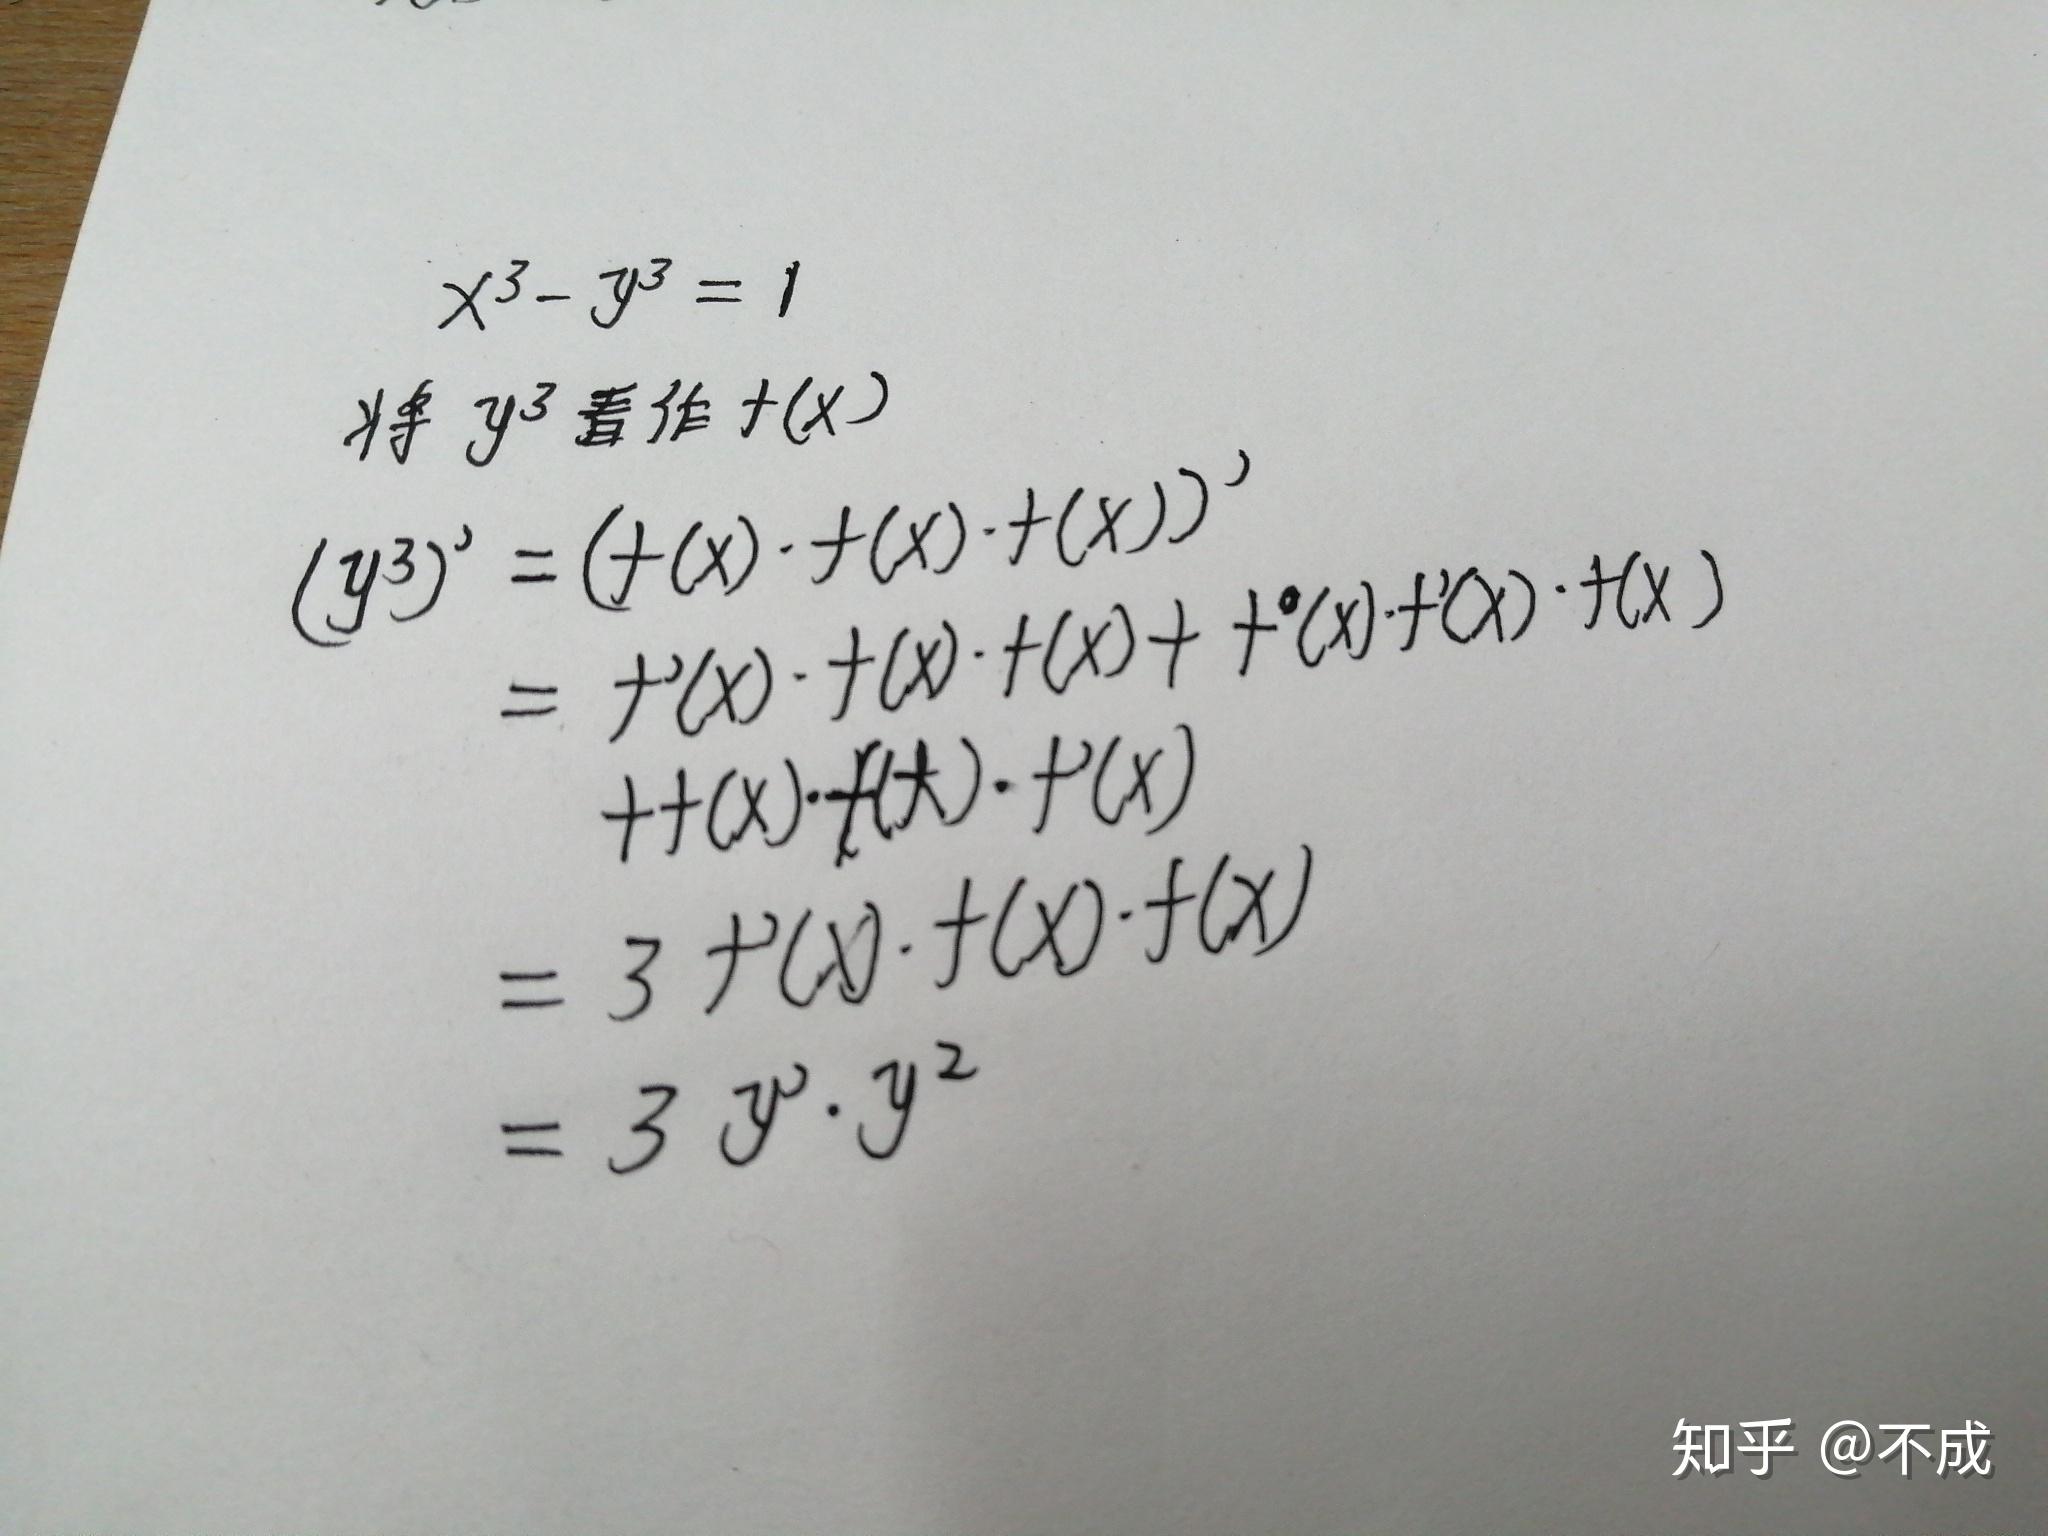 x³ - y³ = 1
将 y³ 看作 f(x)
(y³)' = (f(x)·f(x)·f(x))'
= f'(x)·f(x)·f(x) + f(x)·f'(x)·f(x)
+f(x)·f(x)·f'(x)
= 3 f'(x)·f(x)·f(x)
= 3 y'·y²
知乎 @不成